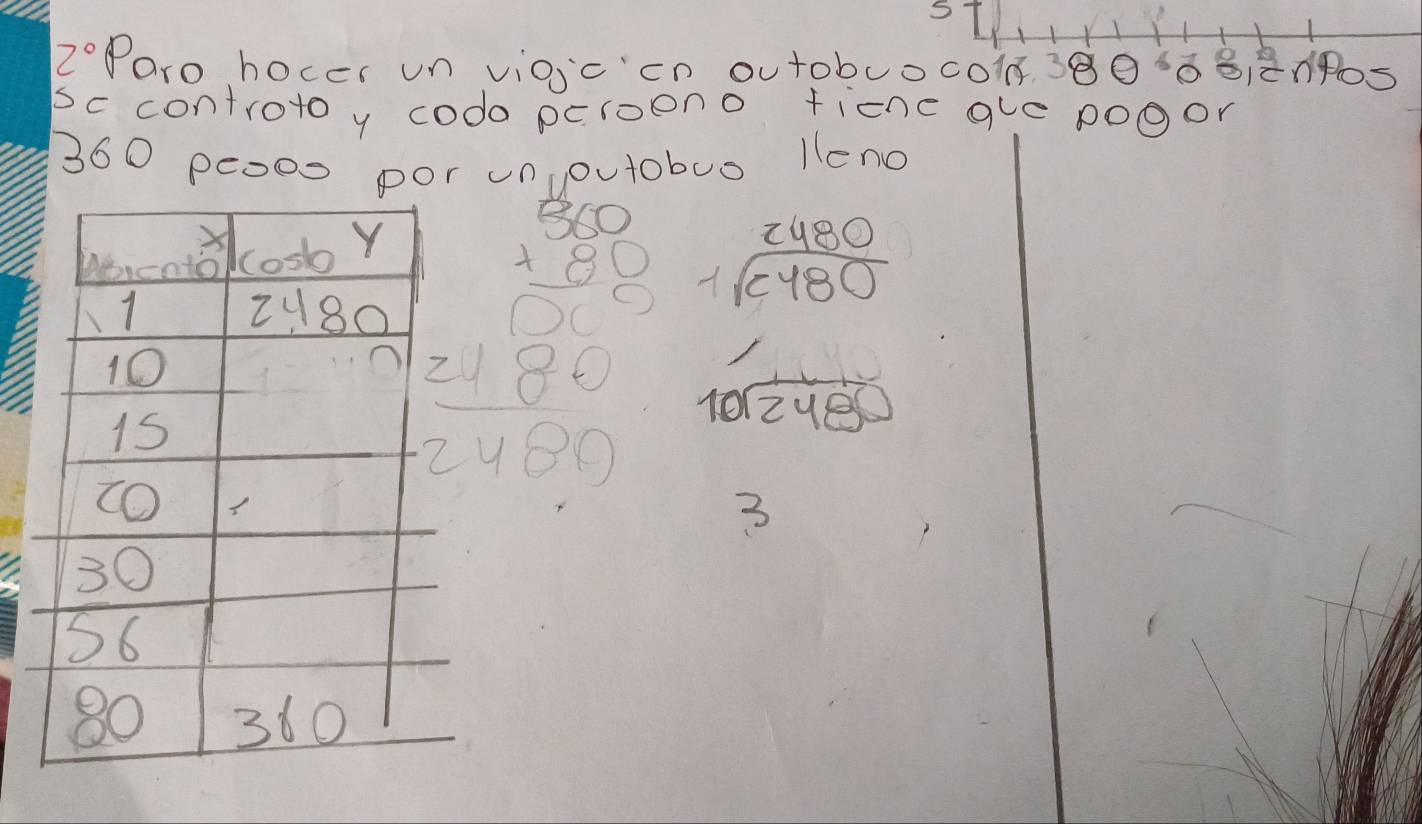 2° Para hacer un viaje en autobus con 80 asientos
se contrato y cada persona tiene que pagar
360 pesos por un autobus lleno
Asiento X Costo Y
1 2480
10
15
20
30
56
80 360
360
+ 80
000
2480
2480
2480
1√2480
10√2480
3